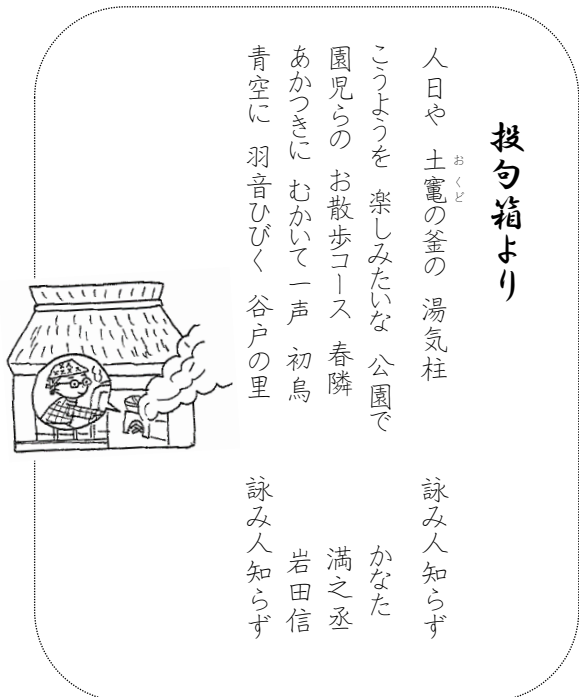 投句箱より
人日や 土竃の釜の 湯気柱 詠み人知らず
おくど
こうようを 楽しみたいな 公園で かなた
園児らの お散歩コース 春隣 満之丞
あかつきに むかいて一声 初烏 岩田信
青空に 羽音ひびく 谷戸の里 詠み人知らず